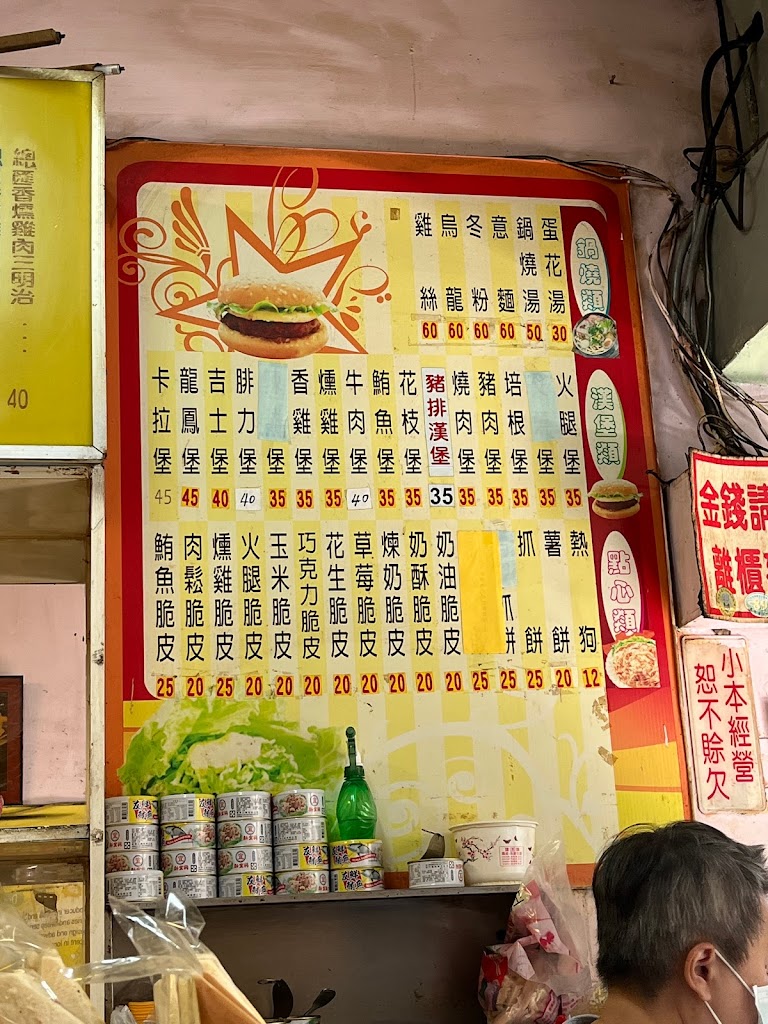 鍋燒類
蛋花湯 30
鍋燒湯 50
意麵 60
冬粉 60
烏龍 60
雞絲 60
漢堡類
火腿堡 35
堡 35
培根堡 35
豬肉堡 35
燒肉堡 35
豬排漢堡 35
花枝堡 35
鮪魚堡 35
牛肉堡 40
燻雞堡 35
香雞堡 35
堡 35
腓力堡 40
吉士堡 40
龍鳳堡 45
卡拉堡 45
點心類
熱狗 12
薯餅 20
抓餅 25
抓餅 25
25
奶油脆皮 20
奶酥脆皮 20
煉奶脆皮 20
草莓脆皮 20
花生脆皮 20
巧克力脆皮 20
玉米脆皮 20
火腿脆皮 20
燻雞脆皮 25
肉鬆脆皮 20
鮪魚脆皮 25
總匯香燻雞肉三明治 ... 40
金錢請
離櫃
小本經營
恕不賒欠